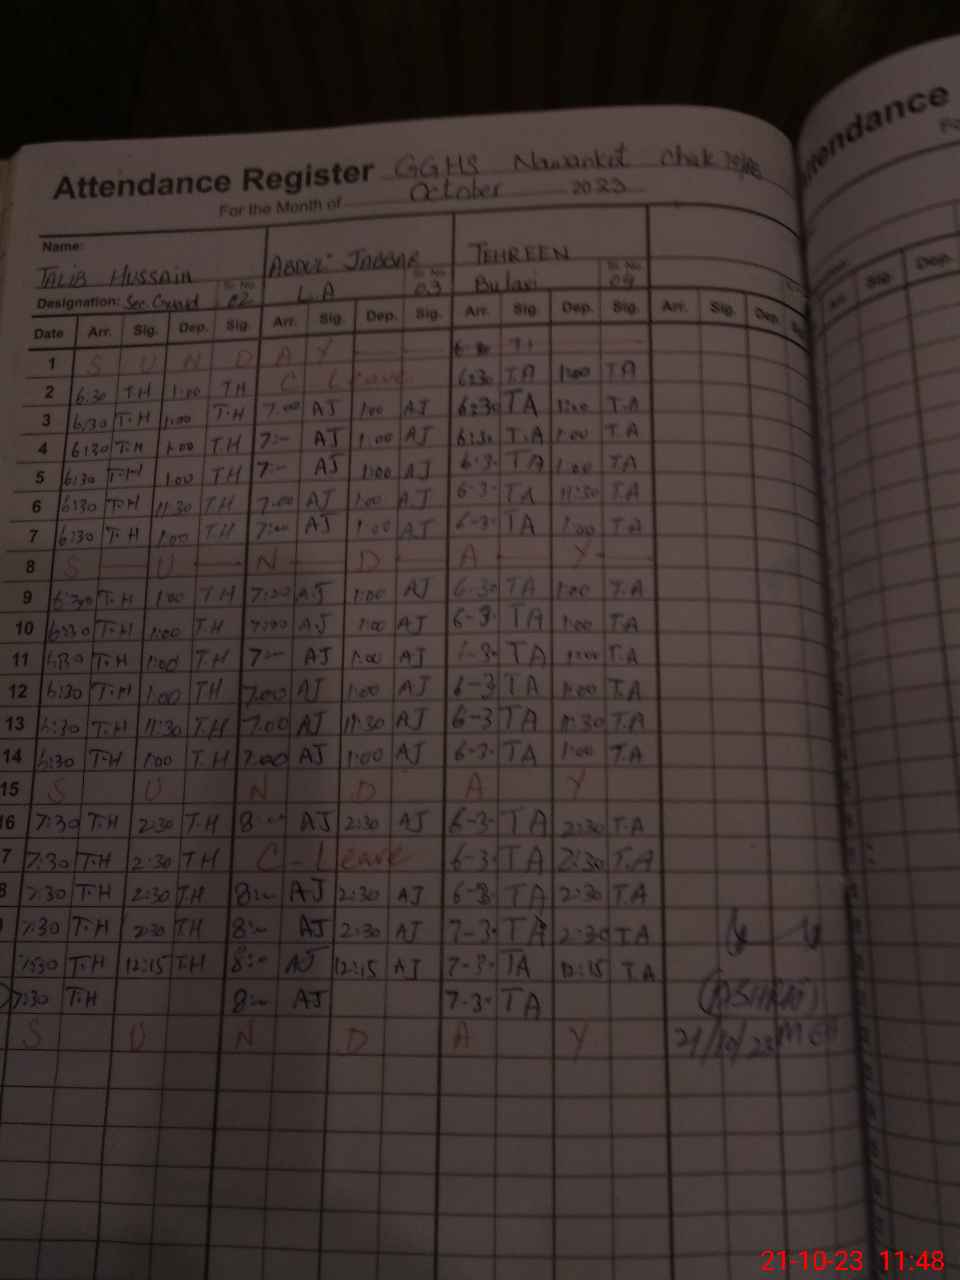 Attendance Register GGHS Nawankot Chak
For the Month of October 2023
Name: TALIB HUSSAIN ABDUL JABBAR TEHREEN
Designation: Sec. Guard Sr. No 02 L.A Sr. No 03 Bulavi Sr. No 04
Date Arr. Sig. Dep. Sig. Arr. Sig. Dep. Sig. Arr. Sig. Dep. Sig. Arr. Sig. Dep.
1 S U N D A Y
2 6:30 T.H 1:00 TH C Leave 6:30 TA 1:00 TA
3 6:30 T.H 1:00 T.H 7:00 AJ 1:00 AJ 6:30 TA 1:00 T.A
4 6:30 T.H 1:00 T.H 7:— AJ 1:00 AJ 6:30 T.A 1:00 T.A
5 6:30 T.H 1:00 T.H 7:— AJ 1:00 AJ 6-3- TA 1:00 TA
6 6:30 T.H 11:30 T.H 7:00 AJ 1:00 AJ 6-3- TA 11:30 T.A
7 6:30 T.H 1:00 T.H 7:00 AJ 1:00 AJ 6-3- TA 1:00 T.A
8 S U N D A Y
9 6:30 T.H 1:00 T.H 7:00 AJ 1:00 AJ 6:30 TA 1:00 T.A
10 6:30 T.H 1:00 T.H 7:00 AJ 1:00 AJ 6-3- TA 1:00 T.A
11 6:30 T.H 1:00 T.H 7:— AJ 1:00 AJ 6-3- TA 1:00 T.A
12 6:30 T.H 1:00 TH 7:00 AJ 1:00 AJ 6-3 TA 1:00 T.A
13 6:30 T.H 11:30 T.H 7:00 AJ 11:30 AJ 6-3 TA 11:30 T.A
14 6:30 T.H 1:00 T.H 7:00 AJ 1:00 AJ 6-3- TA 1:00 T.A
15 S U N D A Y
16 7:30 T.H 2:30 T.H 8:— AJ 2:30 AJ 6-3- TA 2:30 T.A
7 7:30 T.H 2:30 TH C-Leave 6-3- TA 2:30 T.A
8 7:30 T.H 2:30 T.H 8:— AJ 2:30 AJ 6-3- TA 2:30 T.A
7:30 T.H 2:30 T.H 8:— AJ 2:30 AJ 7-3- TA 2:30 T.A
7:30 T.H 12:15 T.H 8:— AJ 12:15 AJ 7-3- TA 12:15 T.A
7:30 T.H 8:— AJ 7-3- TA
(ASHRAF)
S U N D A Y 21/10/23
Attendance
Sig. Dep.
21-10-23 11:48